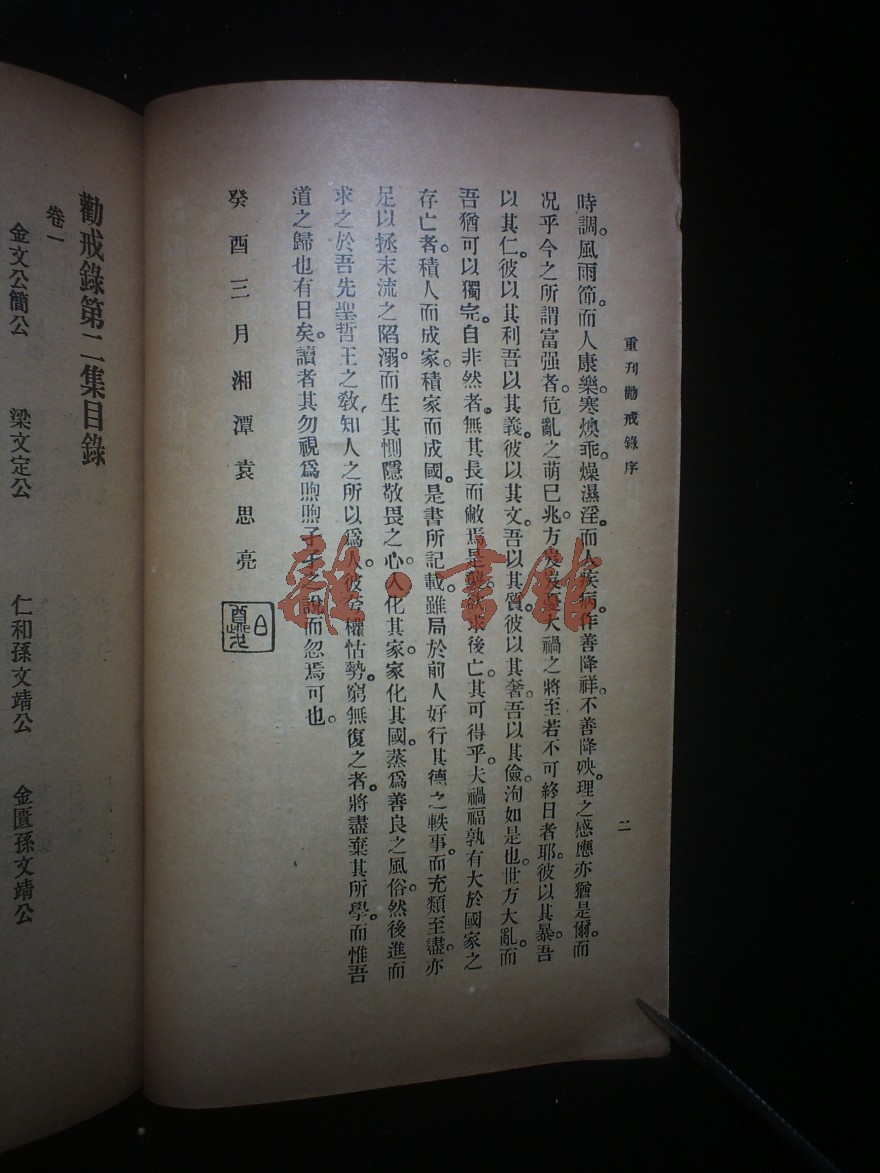 重刊勸戒錄序
二
時調。風雨節。而人康樂。寒燠乖。燥濕淫。而人疾病。作善降祥。不善降殃。理之感應亦猶是爾。而
况乎今之所謂富强者。危亂之萌已兆。方岌岌憂大禍之將至若不可終日者耶。彼以其暴。吾
以其仁。彼以其利吾以其義。彼以其文。吾以其質。彼以其奢。吾以其儉。洵如是也。世方大亂。而
吾猶可以獨完。自非然者。無其長而敝焉是襲。欲求後亡。其可得乎。夫禍福孰有大於國家之
存亡者。積人而成家。積家而成國。是書所記載。雖局於前人好行其德之軼事。而充類至盡。亦
足以拯末流之陷溺。而生其惻隱敬畏之心。人化其家。家化其國。蒸爲善良之風俗。然後進而
求之於吾先聖哲王之教。知人之所以爲人。彼夸權怙勢。窮無復之者。將盡棄其所學。而惟吾
道之歸也有日矣。讀者其勿視爲煦煦孑孑之說而忽焉可也。
癸酉三月湘潭袁思亮
雜·書館
勸戒錄第二集目錄
卷一
金文公簡公
梁文定公
仁和孫文靖公
金匱孫文靖公